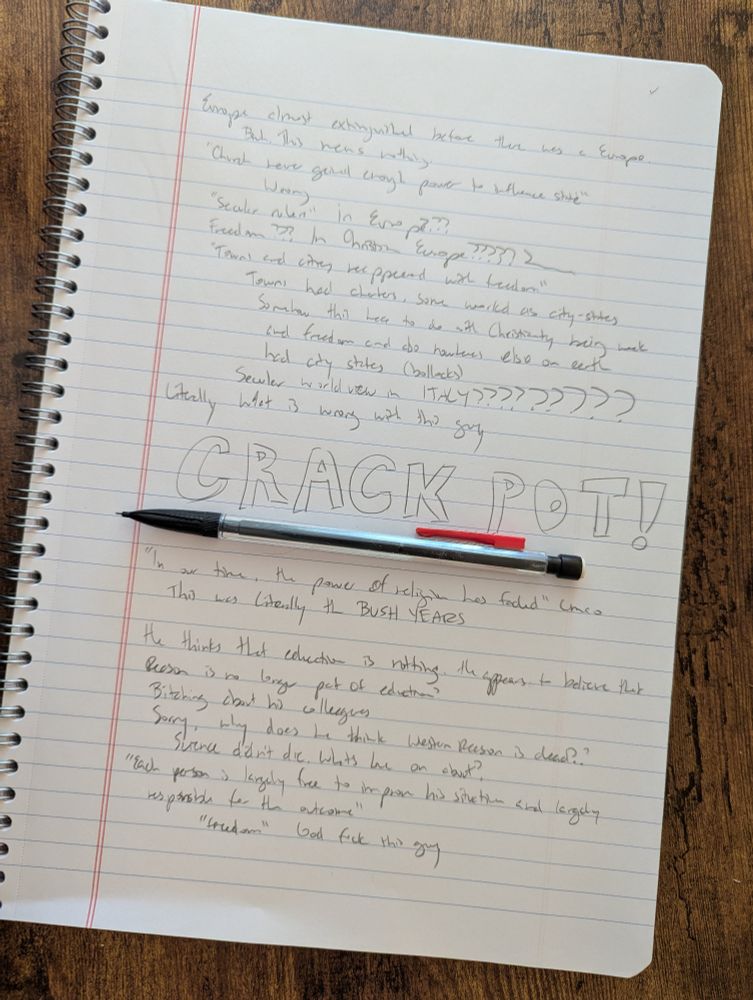 Europe almost extinguished before there was a Europe.
But this means nothing.
"Church never gained enough power to influence state"
Wrong
"Secular rulers" in Europe???
Freedom?? In Christian Europe?????
"Towns and cities reappeared with freedom"
Towns had charters, some worked as city-states
Somehow this has to do with Christianity being weak
and freedom and also nowhere else on earth
had city states (bollocks)
Secular world view in ITALY?????????
Literally what is wrong with this guy
CRACK POT!
"In our time, the power of religion has faded"
This was literally the BUSH YEARS
He thinks that education is rotting. He appears to believe that
Reason is no longer part of education?
Bitching about his colleagues
Sorry, why does he think Western Reason is dead??
Science didn't die. What's he on about?
"Each person is largely free to improve his situation and largely
responsible for the outcome"
"freedom" God fuck this guy